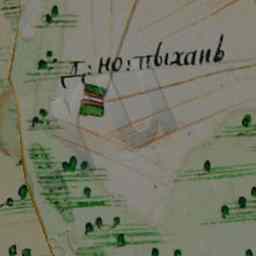 Д: но: пыхань